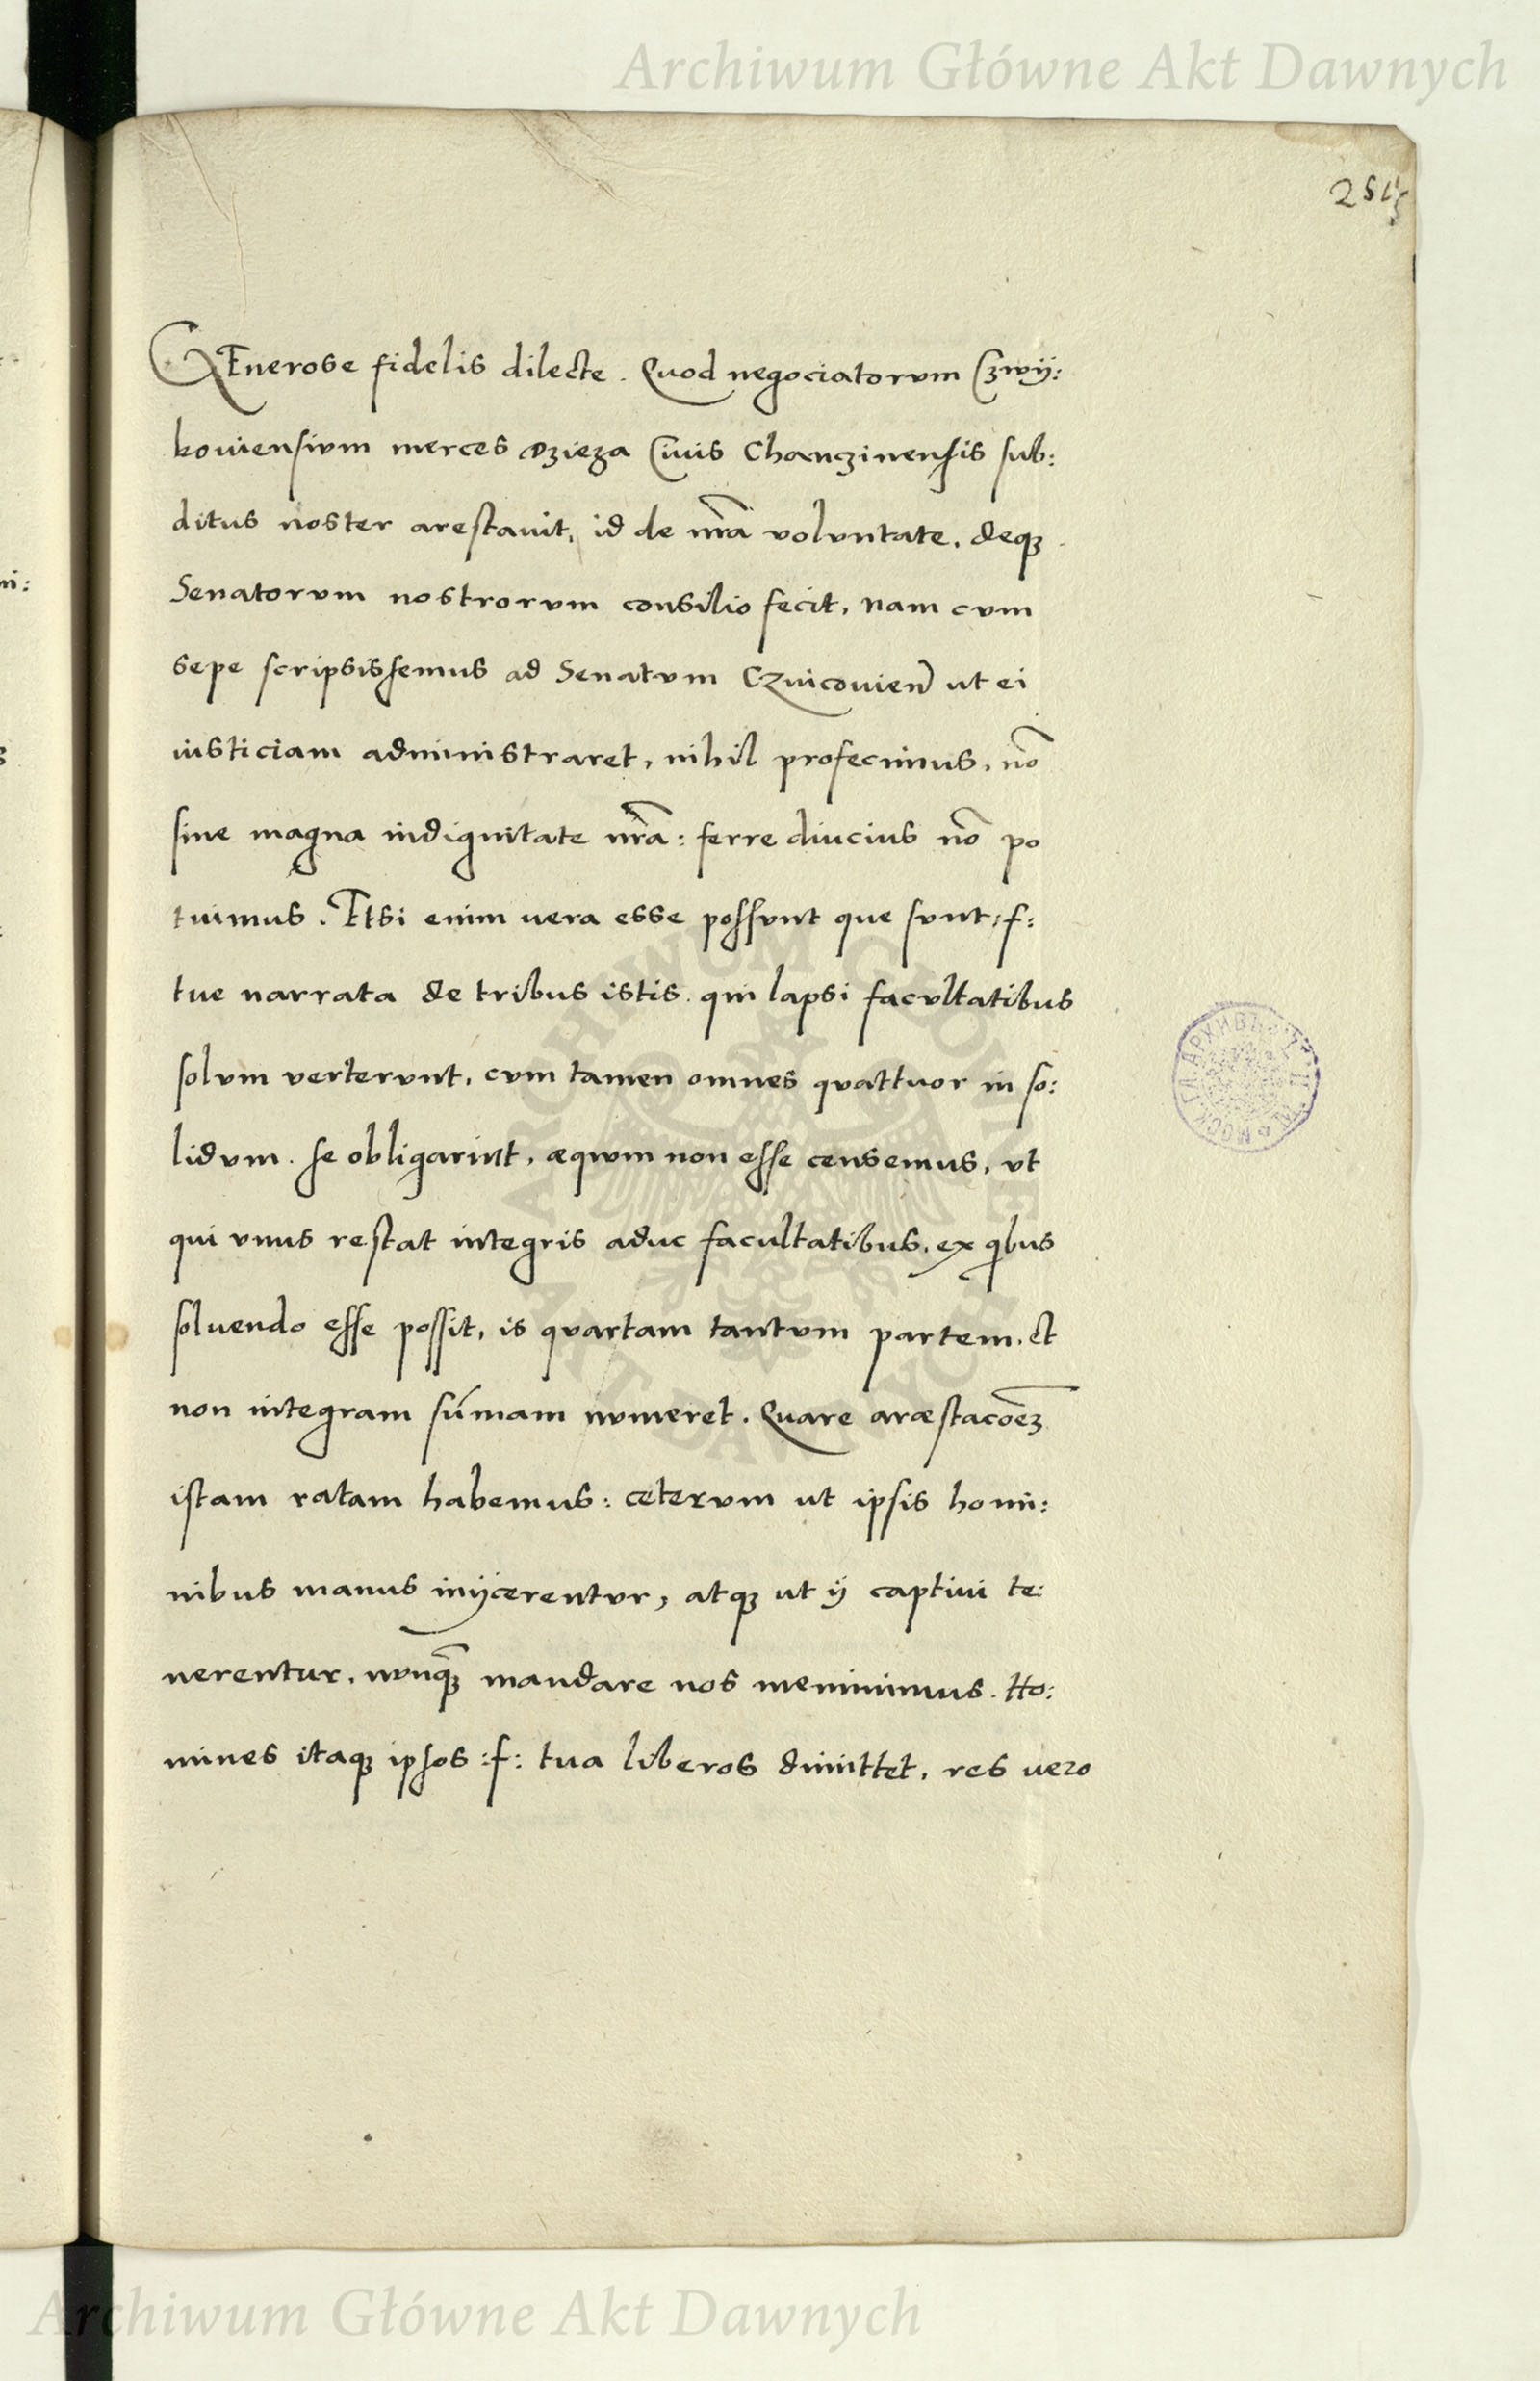 Archiwum Główne Akt Dawnych
GEnerose fidelis dilecte. Quod negociatorvm Czwÿ:
kouiensivm merces Dziega Ciuis Chanczinensis sub:
ditus noster arestauit, id de nr̃a volvntate, deqꝫ
Senatorvm nostrorvm consilio fecit, nam cvm
sepe scripsissemus ad Senatvm Czuicouien̄ ut ei
iusticiam administraret, nihil profecimus, nō
sine magna indignitate nr̃a: ferre diucius nō po
tuimus. Etsi enim uera esse possvnt que svnt :f:
tue narrata de tribus istis qui lapsi facvltatibus
solvm vertervnt, cvm tamen omnes qvattvor in so:
lidvm se obligarint, æqvvm non esse censemus, vt
qui vnus restat integris aduc facultatibus, ex qͥbus
soluendo esse possit, is qvartam tantvm partem, et
non integram sum̄am nvmeret. Quare aræstacōeꝫ
istam ratam habemus: cetervm ut ipsis homi:
nibus manus inÿcerentvr, atqꝫ ut ÿ captiui te:
nerentur, nvnqꝫ̃ mandare nos meminimus. Ho:
mines itaqꝫ ipsos :f: tua liberos dimittet, res uero
Archiwum Główne Akt Dawnych